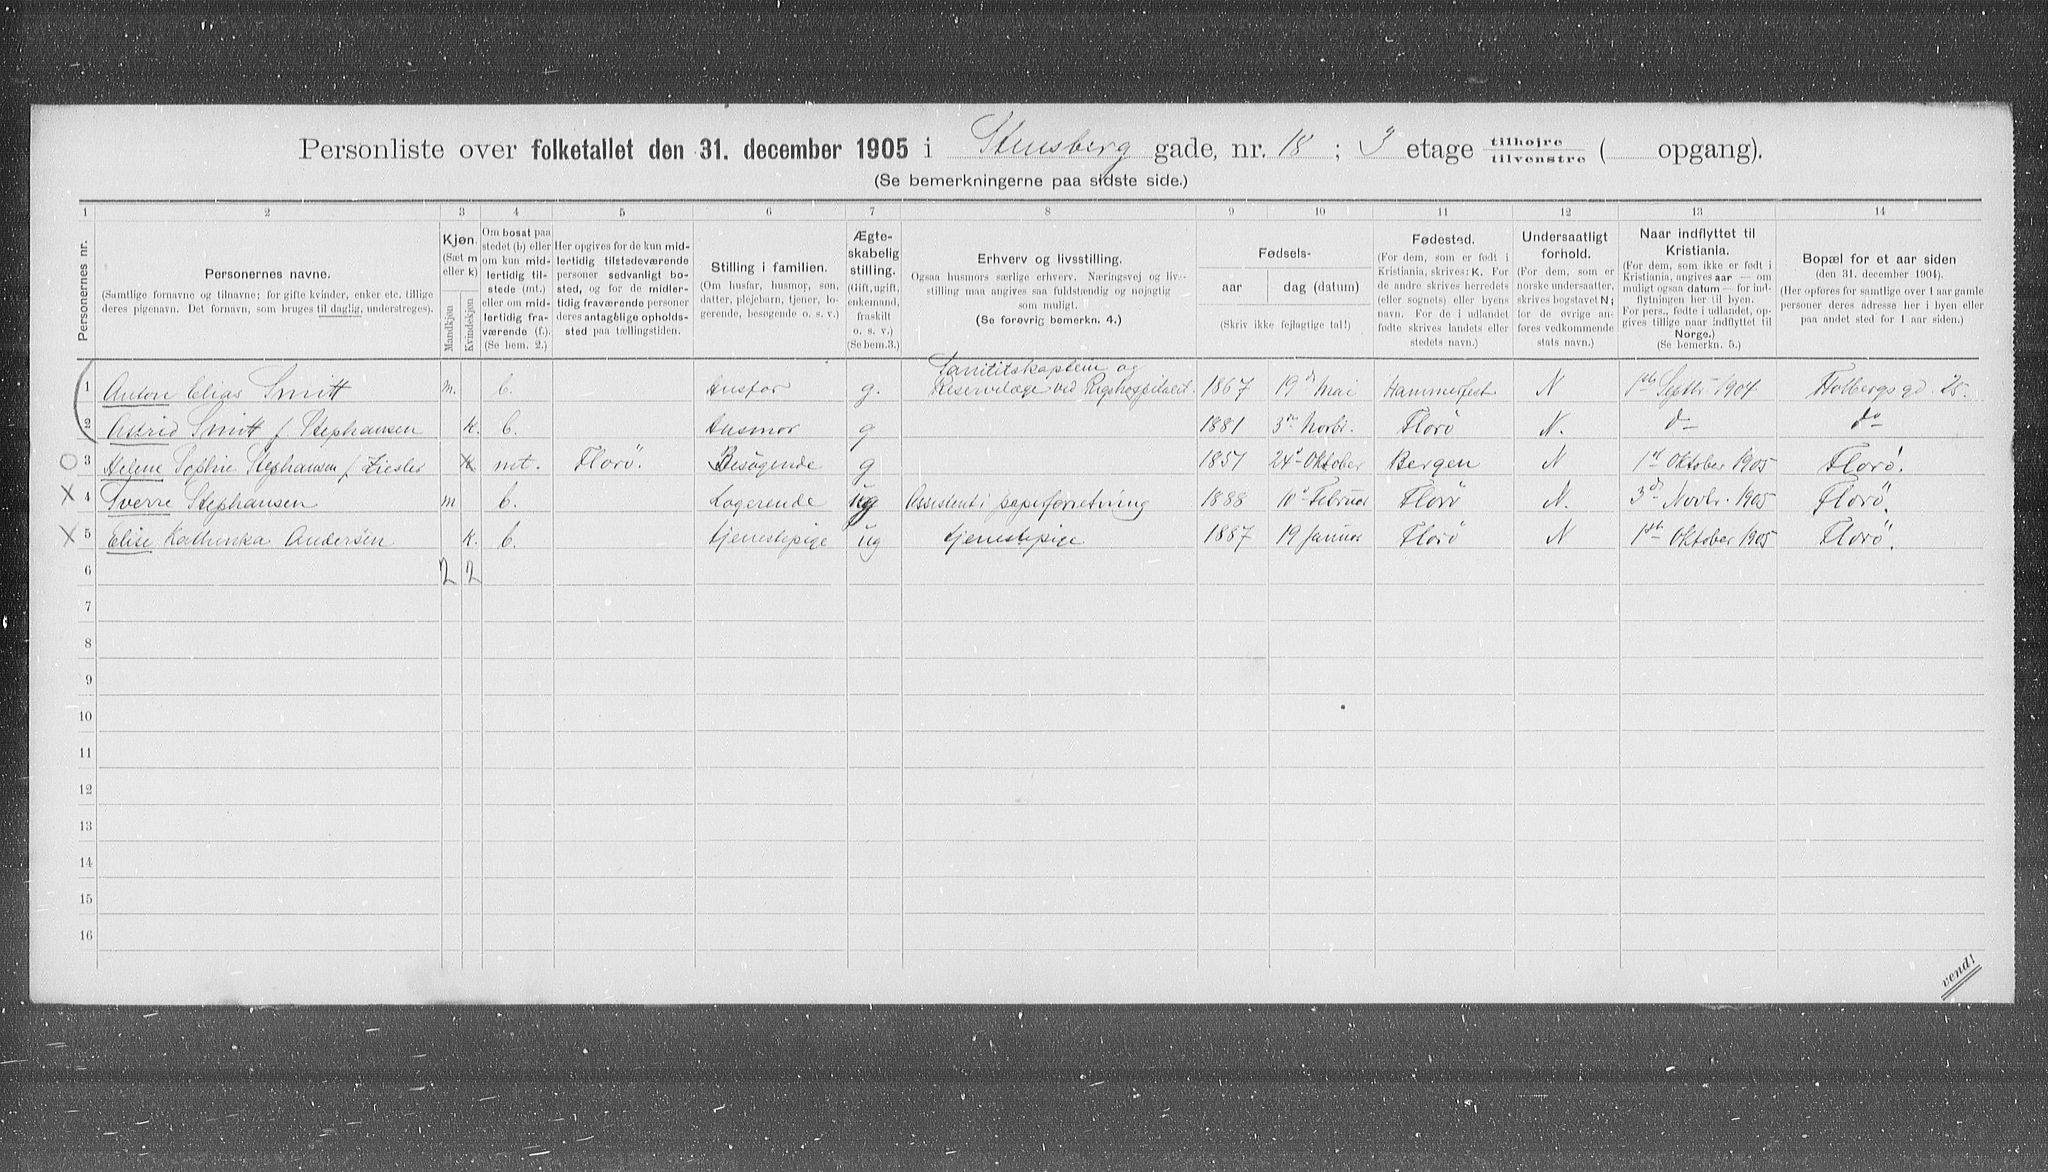 Personliste over folketallet den 31. december 1905 i Stensberg gade, nr. 18 ; 3 etage tilhøjre tilvenstre ( opgang).
(Se bemerkningerne paa sidste side.)
1 2 3 4 5 6 7 8 9 10 11 12 13 14
Personernes nr.
Personernes navne.
(Samtlige fornavne og tilnavne; for gifte kvinder, enker etc. tillige
deres pigenavn. Det fornavn, som bruges til daglig, understreges).
Kjøn.
(Sæt m
eller k)
Mandkjøn
Kvindekjøn
Om bosat paa
stedet (b) eller
om kun mid-
lertidig til-
stede (mt.)
eller om mid-
lertidig fra-
værende (f.).
(Se bem. 2.)
Her opgives for de kun mid-
lertidig tilstedeværende
personer sedvanligt bo-
sted, og for de midler-
tidig fraværende personer
deres antagelige opholds-
sted paa tællingstiden.
Stilling i familien.
(Om husfar, husmor, søn,
datter, plejebarn, tjener, lo-
gerende, besøgende o. s. v.)
Ægte-
skabelig
stilling.
(Gift, ugift,
enkemand,
fraskilt
o. s. v.)
(Se bem.3.)
Erhverv og livsstilling.
Ogsaa husmors særlige erhverv. Næringsvej og liv-
stilling maa angives saa fuldstændig og nøjagtig
som muligt.
(Se forøvrig bemerkn. 4.)
Fødsels-
aar
dag (datum)
(Skriv ikke fejlagtige tal!)
Fødested.
(For dem, som er født i
Kristiania, skrives: K. For
de andre skrives herredets
(eller sognets) eller byens
navn. For de i udlandet
fødte skrives landets eller
stedets navn.)
Undersaatligt
forhold.
(For dem, som er
norske undersaatter,
skrives bogstavet N;
for de øvrige an-
føres vedkommende
stats navn.)
Naar indflyttet til
Kristiania.
(For dem, som ikke er født i
Kristiania, angives aar — om
muligt ogsaa datum — for ind-
flytningen her til byen.
For pers., fødte i udlandet, op-
gives tillige naar indflyttet til
Norge.)
(Se bemerkn. 5.)
Bopæl for et aar siden
(den 31. december 1904).
(Her opføres for samtlige over 1 aar gamle
personer deres adresse her i byen eller
paa andet sted for 1 aar siden.)
Sanitetskaptein og
1 Anton Elias Smitt m. b. Husfar g. Reservelæge ved Rigshospitalet. 1867 19d Mai Hammerfest N 1ste Septbr 1904 Holbergs gd 25.
2 Astrid Smitt f Stephansen k. b. Husmor g 1881 3die Novbr. Florø N. do do
3 Helene Sophie Stephansen f Ziesler k. mt. Florø. Besøgende g 1857 24d Oktober Bergen N 1st Oktober 1905 Florø.
4 Sverre Stephansen m b. Logerende ug Assistent i papirforretning 1888 10d Februar Florø N. 3d Novbr. 1905 Florø.
5 Elise Kathinka Andersen k. b. tjenestepige ug tjenestepige 1887 19 Januar Florø N 1ste Oktober 1905 Florø.
6 2 2
7
8
9
10
11
12
13
14
15
16
vend!